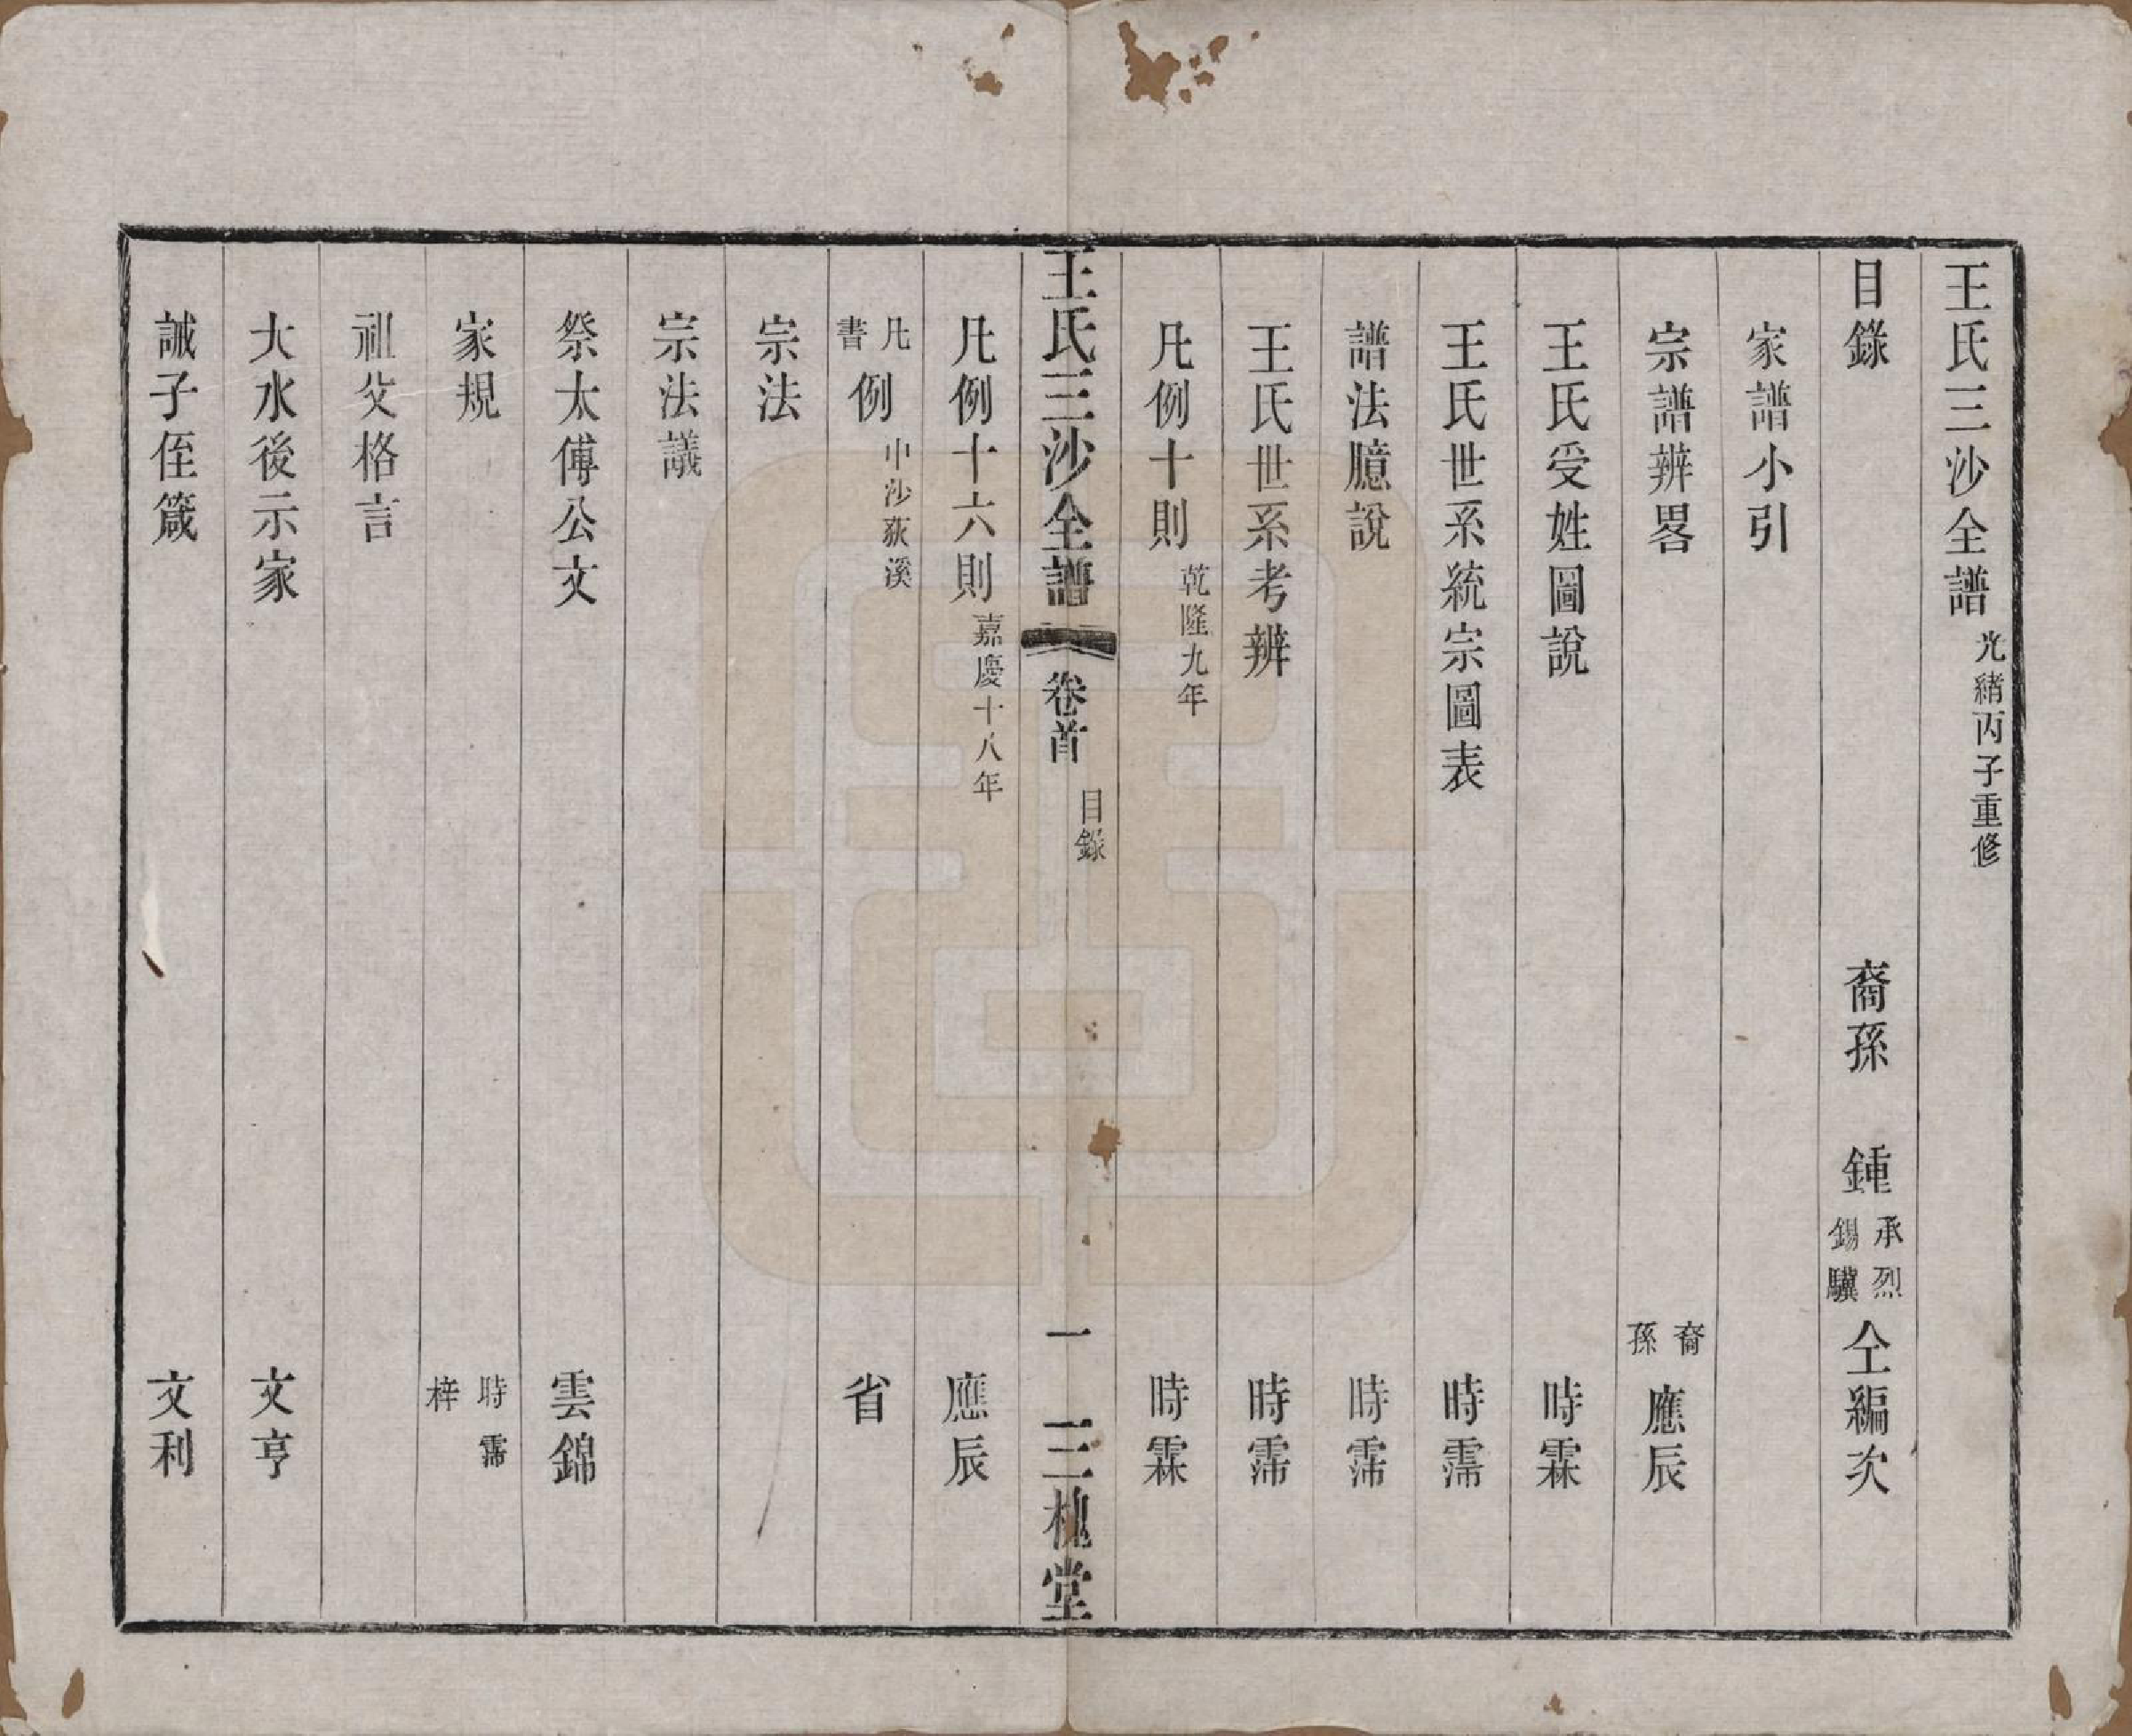 王氏三沙全譜 光緒丙子重修
目錄 裔孫 鍾 承烈 錫驥 仝編次
家譜小引
宗譜辨畧 裔孫 應辰
王氏受姓圖說 時霖
王氏世系統宗圖表 時霈
譜法臆說 時霈
王氏世系考辨 時霈
凡例十則 乾隆九年 時霖
王氏三沙全譜 卷首 目錄 一 三槐堂
凡例十六則 嘉慶十八年 應辰
凡書例 中沙荻溪 省
宗法
宗法議
祭太傅公文 雲錦
家規 時霈 梓
祖父格言
大水後示家 文亨
誡子侄箴 文利